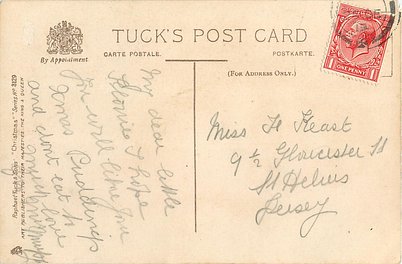 TUCK'S POST CARD
CARTE POSTALE.
POSTKARTE.
By Appointment
(FOR ADDRESS ONLY.)
Raphael Tuck & Sons' "Christmas" Series Nº 8129
ART PUBLISHERS TO THEIR MAJESTIES THE KING & QUEEN
ONE PENNY
My dear little
I hope
you will like your
Xmas Pudding
and dont eat to
much love
Miss H Keast
9 ½ Gloucester St
St Heliers
Jersey